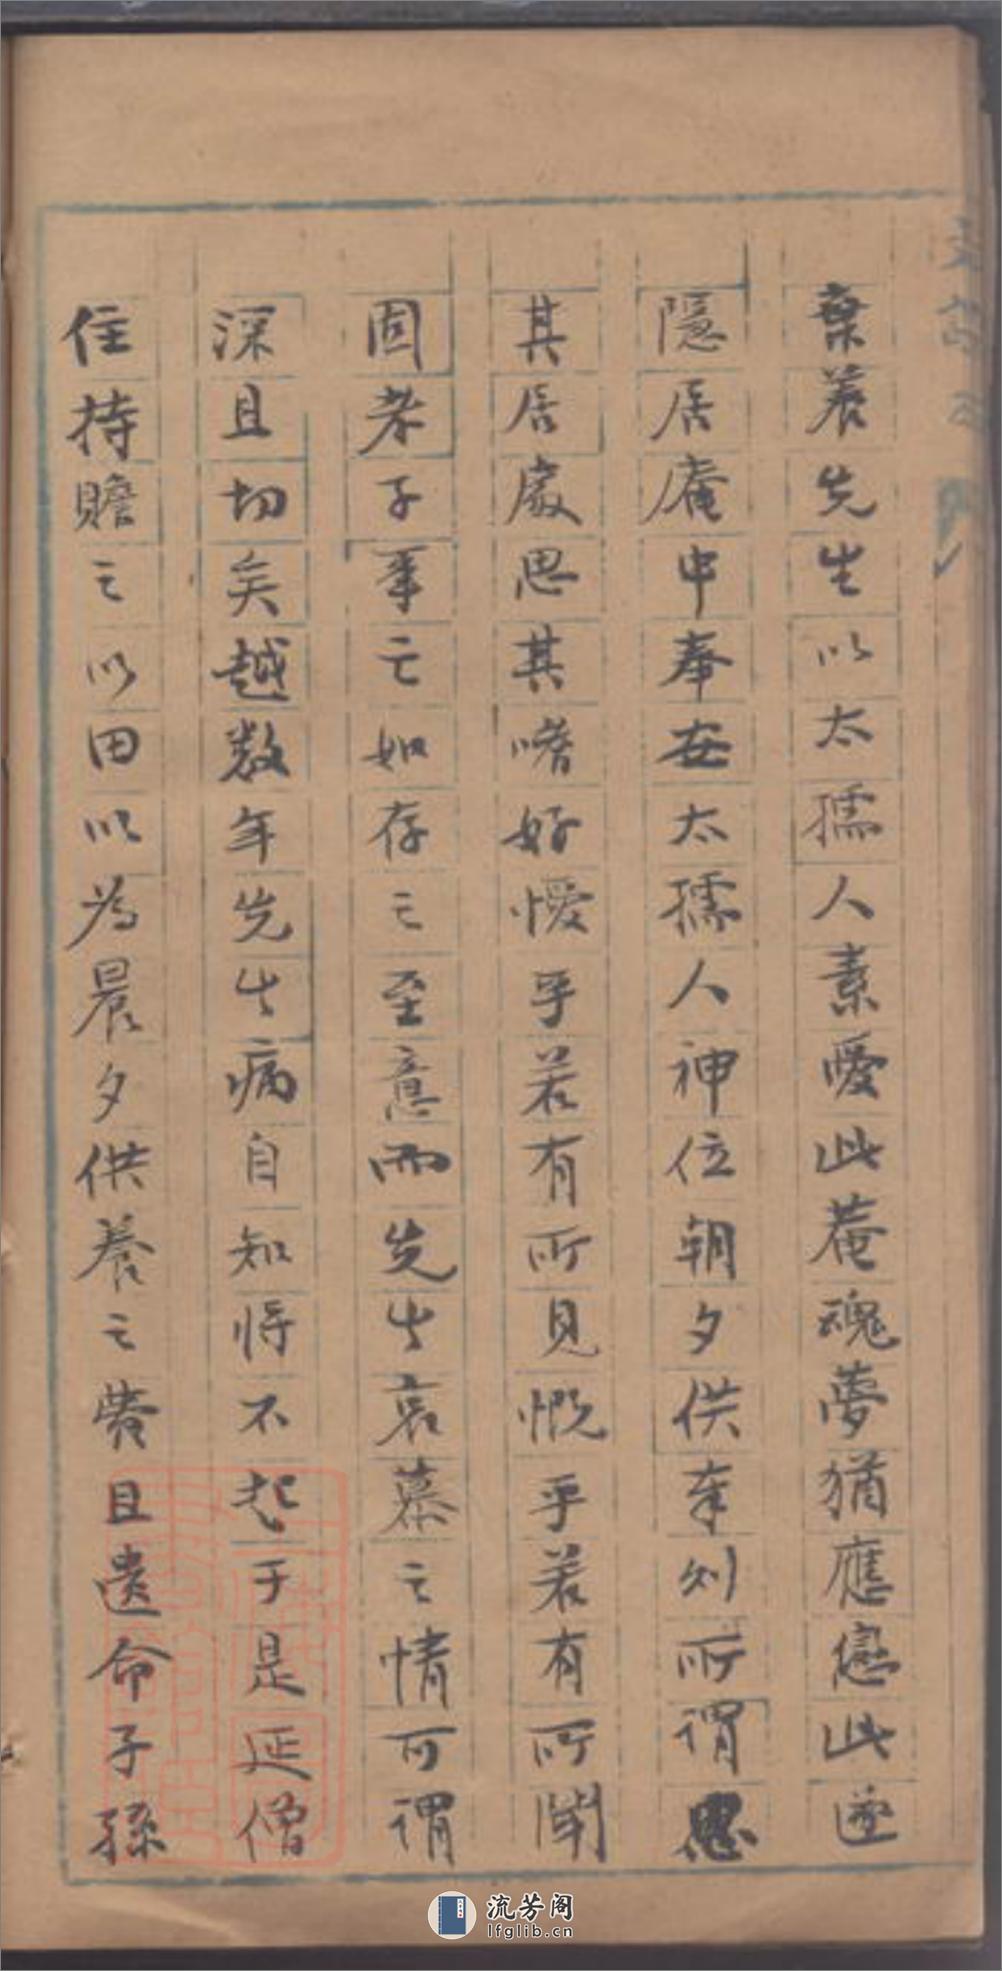 棄養先生以太孺人素愛此菴魂夢猶應戀此遂
隱居庵中奉安太孺人神位朝夕供奉則所謂思
其居處思其嗜好僾乎若有所見慨乎若有所聞
固孝子事亡如存之至意而先生哀慕之情可謂
深且切矣越數年先生病自知將不起于是延僧
住持贍之以田以為晨夕供養之費且遺命子孫
流芳阁
lfglib.cn